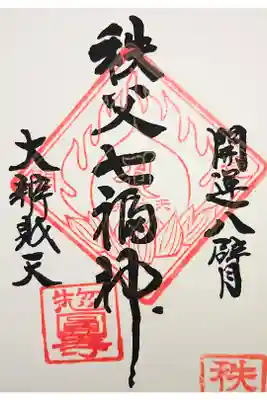 開運八臂
秩父七福神
大辨財天
惣圓寺
秩